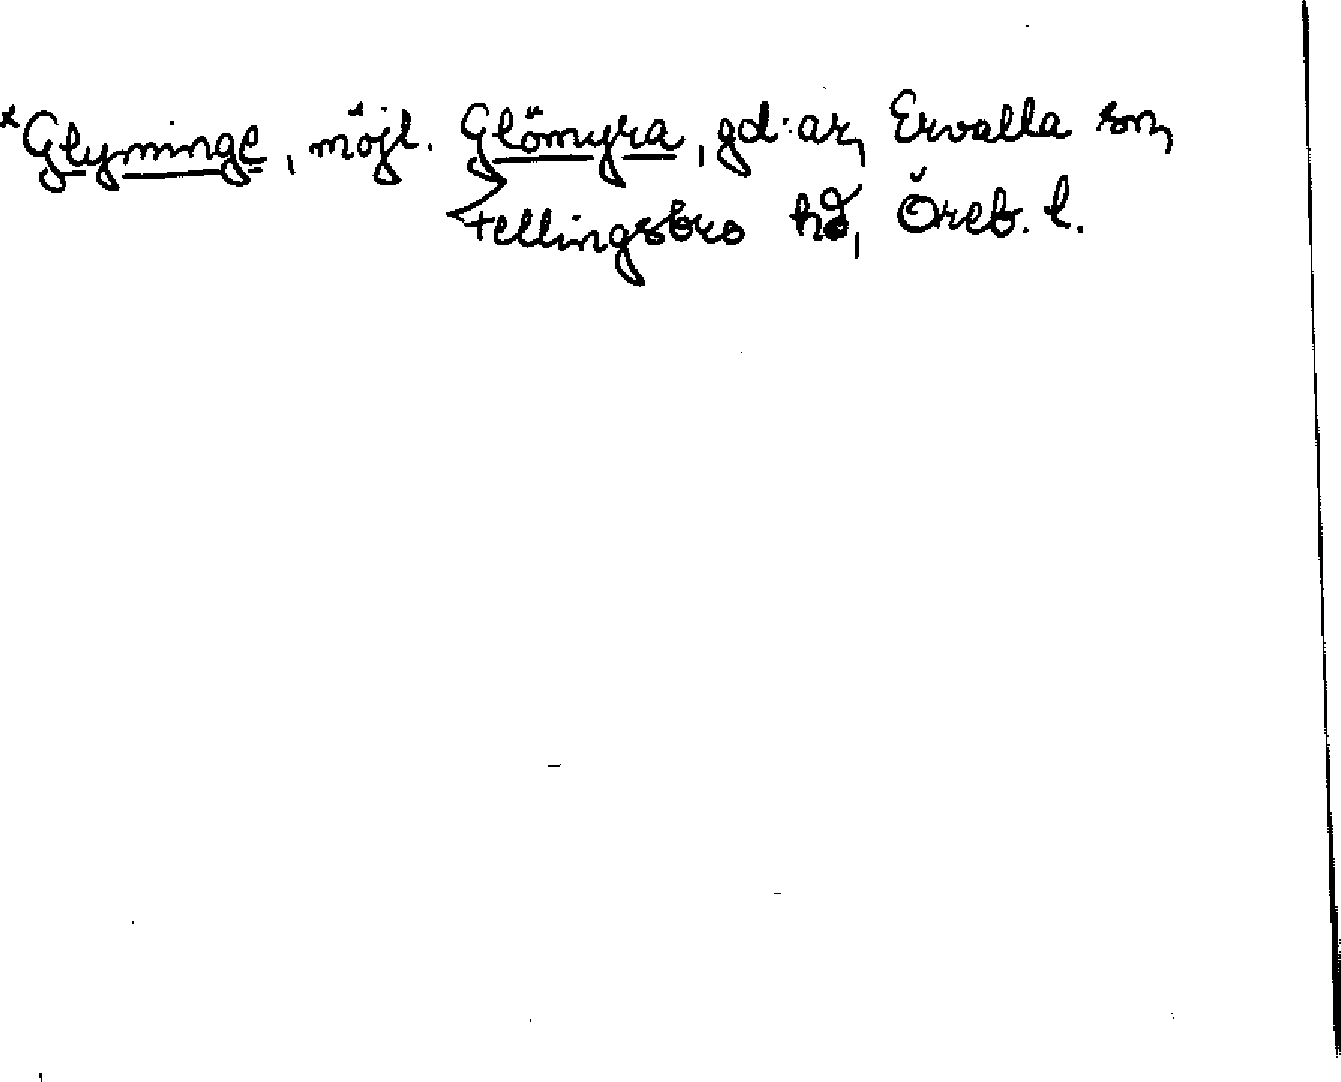 *Glyminge, möjl. Glömyra, gd:ar, Ervalla sn,
Fellingsbro hd, Öreb. l.